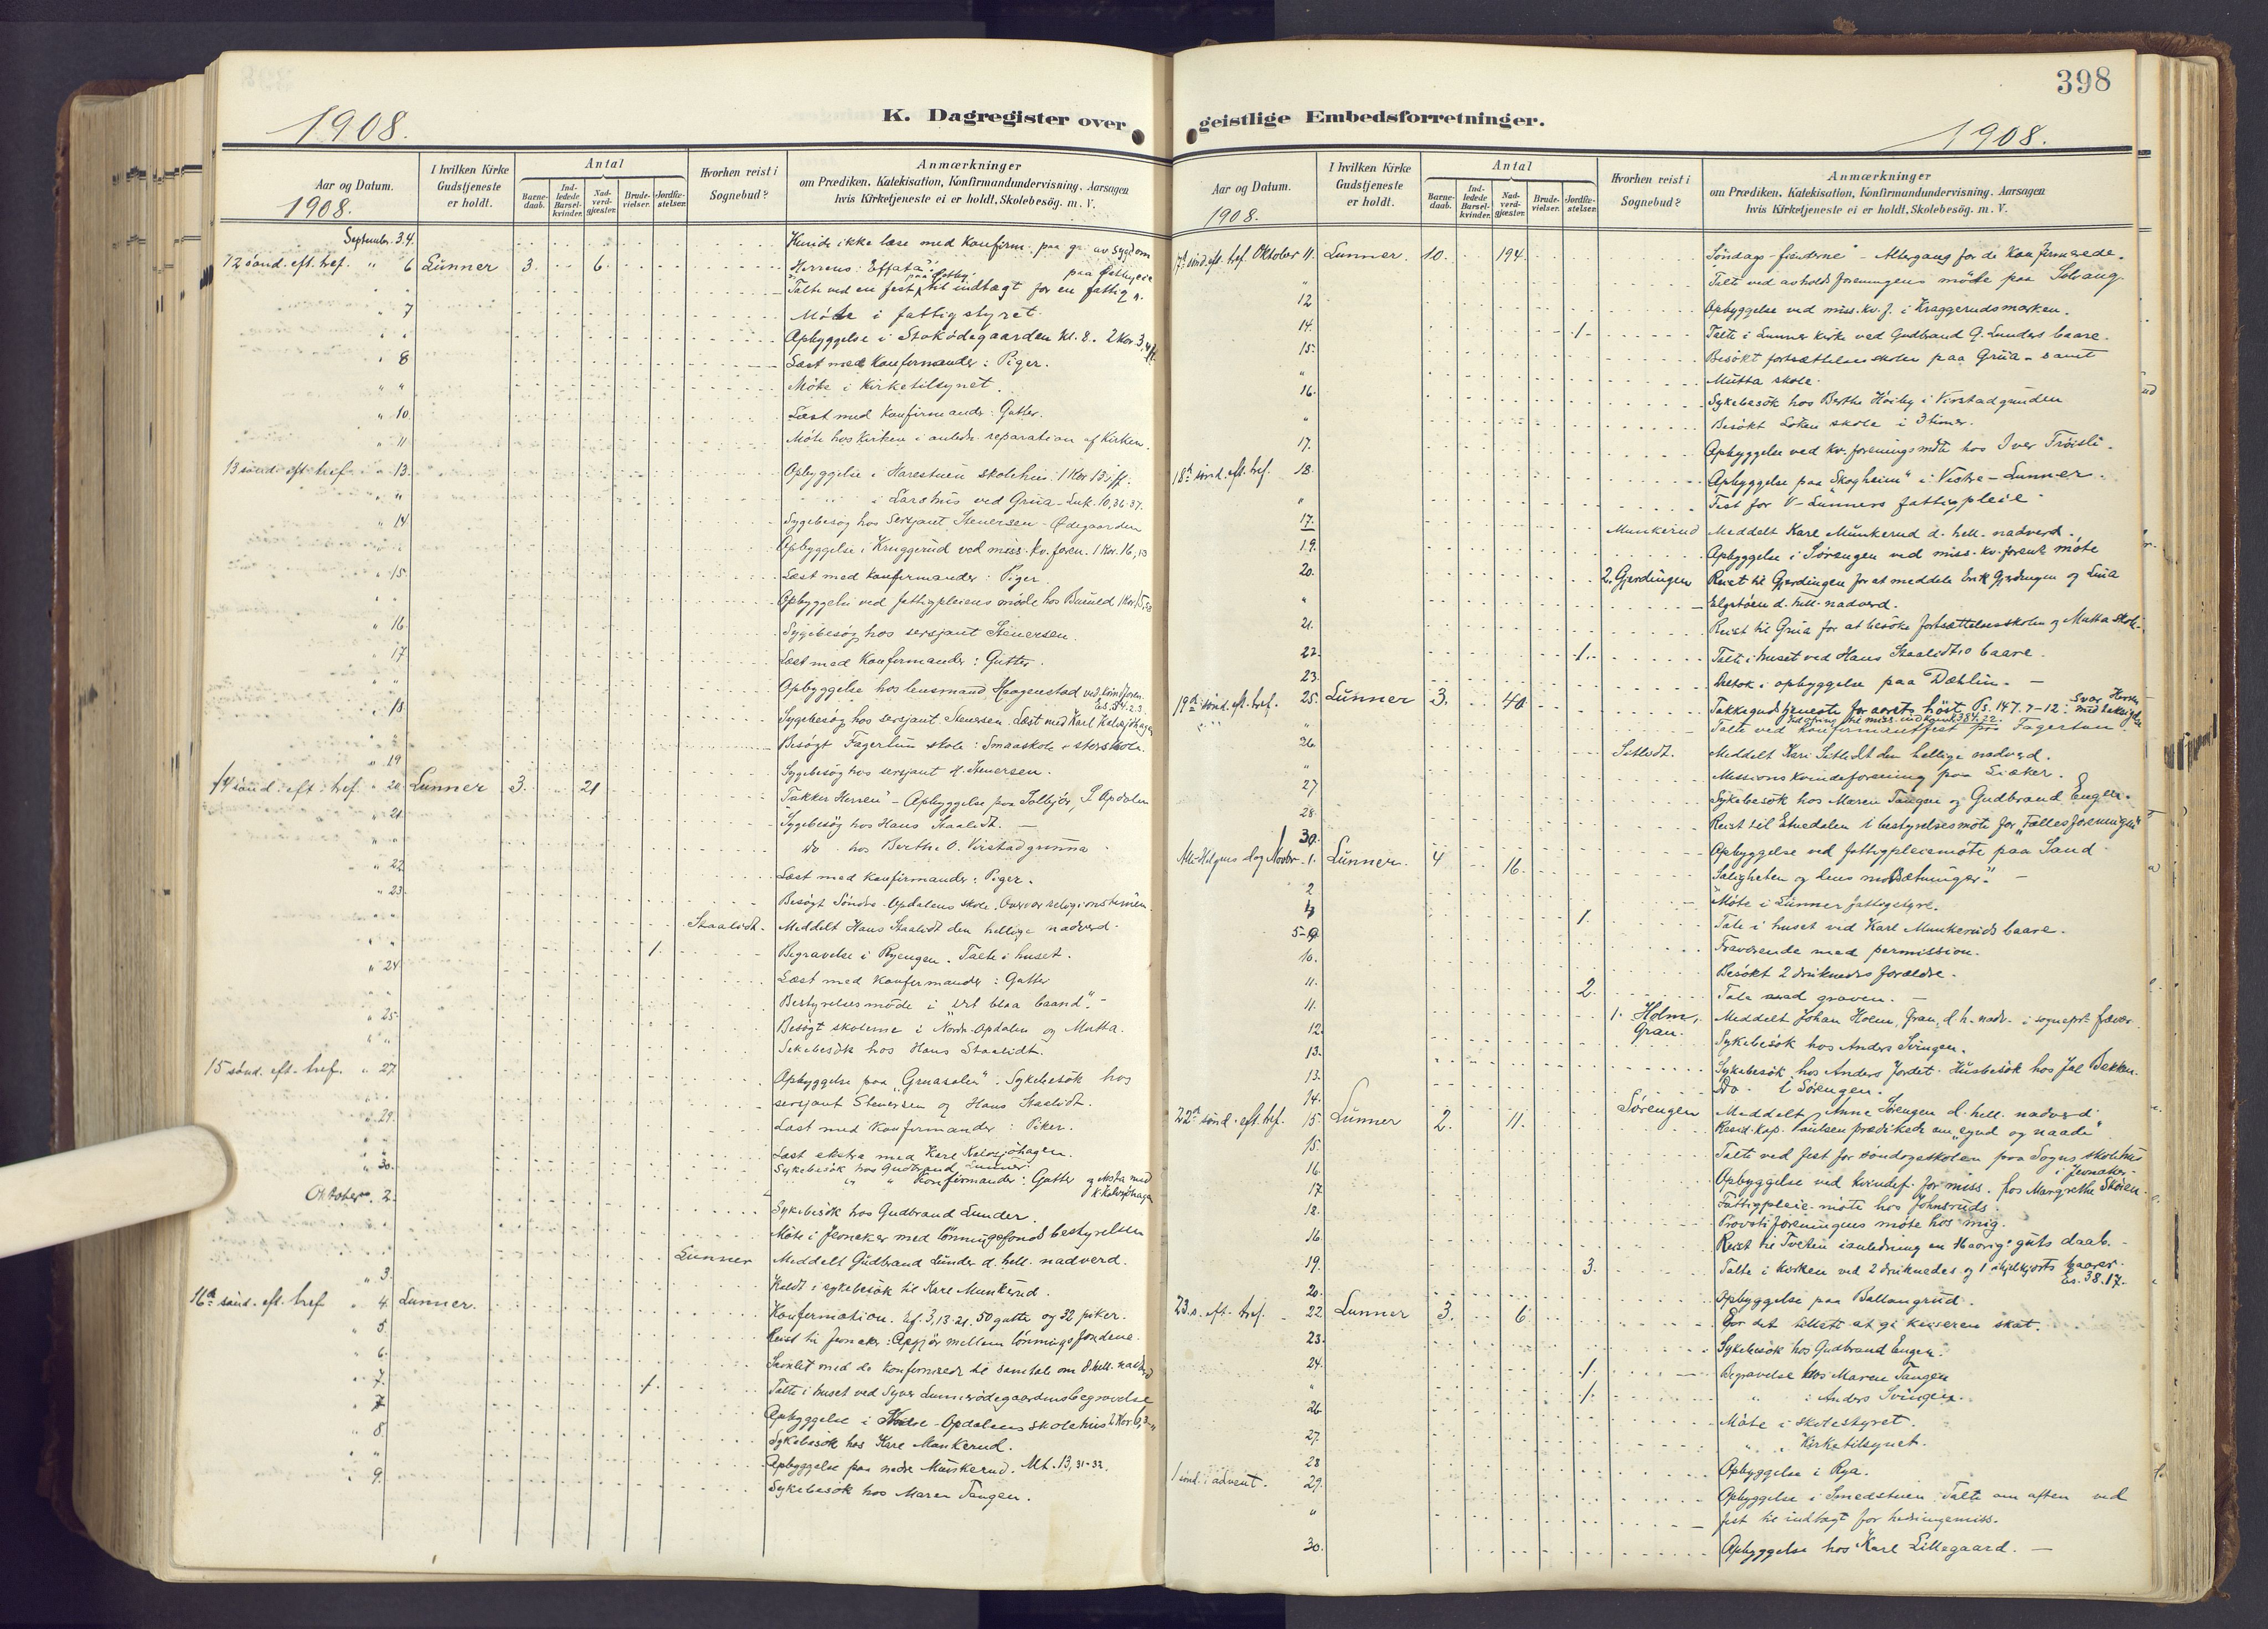 1908.
K. Dagregister over
Aar og Datum.
1908.
I hvilken Kirke Gudstjeneste er holdt.
Antal
Barne-daab.
Ind-ledede Barsel-kvinder.
Nad-verd-gjæster.
Brude-vielser.
Jordfæ-stelser.
Hvorhen reist i Sognebud?
Anmærkninger
om Prædiken, Katekisation, Konfirmandundervisning, Aarsagen
hvis Kirketjeneste ei er holdt, Skolebesög. m. V.
September. 3.4. Kunde ikke læse med Konfirm. paa gr. av sygdom
12 sönd. eft. tref. " 6 Lunner 3. 6. Herrens: "Effata".
Talte ved en fest til indtægt for en fattig
" 7 Möte i fattigstyret.
Opbyggelse i Stoködegaarden Kl. 8. 2 Kor. 3, 4 ff.
" 8 Læst med Konfirmander: Piger.
" " Möte i Kirketilsynet.
" 10. Læst med Konfirmander: Gutter.
" 11 Möte hos Kirken i anledn. reparation af Kirken.
13 sönd. eft. tref. " 13. Opbyggelse i Harestuen skolehus. 1 Kor 13, ff.
" ved Grua - Luk. 10, 36-37.
" 14 Sygebesög hos Sersjant Stenersen - Ödegaarden
Opbyggelse i Kruggerud ved miss. kv. foren. 1 Kor. 16, 13
" 15 Læst med Konfirmander: Piger.
Opbyggelse ved fattigpleiens möde hos
" 16. Sygebesög hos sersjant Stenersen.
" 17 Læst med Konfirmander: Gutter.
Opbyggelse hos lensmand Haagenstad ved kvindforen.
" 18. Sygebesög hos sersjant Stenersen. Læst med Karl Kalvsjöhagen
Besögt Fagertun skole: Smaaskole + storskole.
" 19 Sygebesög hos sersjant H. Stenersen.
14 sönd. eft. tref. " 20. Lunner 3. 21 "Takker Herren" - Opbyggelse paa Solbjör, S. Opdalen
" 21. Sygebesög hos Hans Staalidt. -
do. hos Berthe O. Virstadgrinna
" 22. Læst med Konfirmander: Piger.
" 23. Besögt Söndre-Opdalens skole.
Staalidt. Meddelt Hans Staalidt den hellige nadverd.
1. Begravelse i Ryengen. Talte i huset.
" 24 Læst med Konfirmander: Gutter
Bestyrelsesmöde i "Det blaa baand". -
" 25. Besögt skolerne i Nordr. Opdalen og Mutta.
" " Sykebesök hos Hans Staalidt.
15 sönd. eft. tref. " 27. Opbyggelse paa "Gruasalen". Sykebesök hos
sersjant Stenersen og Hans Staalidt.
" 29. Læst med Konfirmander: Piker.
Læst ekstra med Karl Kalvsjöhagen.
" 30. Sykebesök hos Gudbrand Lunner.
" " Konfirmander: Gutter
Oktober. 2. Sykebesök hos Gudbrand Lunder.
Möte i Jevnaker med lönningsfonds bestyrelsen
Lunner Meddelt Gudbrand Lunder d. hell. nadverd.
" 3. Kaldt i sykebesök til Kare Munkerud.
16de sönd. eft. tref. " 4. Lunner. Konfirmation. Ef. 3, 13-21. 50 gutter og 32 piker.
" 5. Reist til Jevnaker: Opgjör mellem lönningsfondene.
" 6. Samlet med de konfirmerede til samtale om d. hell. nadverd
" 7. 1. Talte i huset ved Syver Lunnerödegaardens begravelse
" 7 Opbyggelse i -Opdalens skolehus 2 Kor 6,
" 8. Sykebesök hos Kare Munkerud.
Opbyggelse paa nedre Munkerud. Mt. 13, 31-32.
" 9. Sykebesök hos Maren Tangen.
398
geistlige Embedsforretninger.
1908.
Aar og Datum.
1908.
I hvilken Kirke Gudstjeneste er holdt.
Antal
Barne-daab.
Ind-ledede Barsel-kvinder.
Nad-verd-gjæster.
Brude-vielser.
Jordfæ-stelser.
Hvorhen reist i Sognebud?
Anmærkninger
om Prædiken, Katekisation, Konfirmandundervisning. Aarsagen
hvis Kirketjeneste ei er holdt, Skolebesög. m. V.
17de sönd. eft. tref. Oktober 11. Lunner. 10. 194. "Söndags-fienderne" - Altergang for de Konfirmerede.
" Talte ved avholdsforeningens möte paa Solvang.
12 Opbyggelse ved miss. kv. f. i Kraggerudsmarken.
14. 1. Talte i Lunner kirke ved Gudbrand G. Lunders baare.
15. Besökt fortsættelsesskolen paa Grua - samt
" Mutta skole.
16. Sykebesök hos Berthe Höiby i Virstadgrinden
" Besökt Löken skole i 3 timer.
17. Opbyggelse ved kv. forenings möte hos Iver Tröisli.
18de sönd. eft. tref. 18. Opbyggelse paa "Skogheim" i Vestre-Lunner.
" Fest for V-Lunners fattigpleie.
17. Munkerud Meddelt Kare Munkerud d. hell. nadverd.
19. Opbyggelse i Sörengen ved miss. kv. foren. möte
20. 2. Gjerdingen Reist til Gjerdingen for at meddele Erik Gjerdingen og Lina
" Elgstöen d. hell. nadverd.
21. Reist til Grua for at besöke fortsættelsesskolen og Mutta skole.
22. 1. Talte i huset ved Hans Staalidts baare.
23. Deltok i opbyggelse paa Dæhlin. -
19de sönd. eft. tref. 25. Lunner 3. 40 Takkegudstjeneste for aarets höst Ps. 147. 7-12:
" Talte ved Konfirmantfest paa Fagertun.
26. Sitlidt. Meddelt Kari Sitlidt den hellige nadverd.
" Missionskvindeforening paa Liaker.
27 Sykebesök hos Maren Tangen og Gudbrand Engen.
28. Reist til Etnedalen i bestyrelsesmöte for "Fællesforeningen"
30. Opbyggelse ved fattigpleiemöte paa Sand.
Alle Helgens dag Novbr. 1. Lunner. 4 16. "Saligheten og dens motsætninger." -
2 Möte i Lunner fattigstyre.
3 1. Tale i huset ved Karl Munkeruds baare.
5-9 Fraværende med permission.
10. Besökt 2 druknedes forældre.
11. 2. Tale ved graven. -
11. 1. Holm, Gran. Meddelt Johan Holm, Gran, d. h. nadv. i sognepr. fravær.
12. Sykebesök hos Anders Svingen.
13. Sykebesök hos Anders Jordet. Husbesök hos Jol Bekken.
13. Do. i Sörengen.
14. Sörengen Meddelt Anne Sörengen d. hell. nadverd.
22de sönd. eft. tref. 15. Lunner 2. 11. Resid. kap. Paulsen prædikede om "synd og naade"
15. Talte ved fest for söndagsskolen paa Sogns skolehus i Jevnaker.
16. Opbyggelse ved kvindef. for miss. hos Margrethe Skören.
17. Fattigpleie-möte hos Johnsruds.
18. Provstiforeningens möte hos mig.
16. Reist til Tveten i anledning en Haavig-guts daab.
19. 3. Talte i kirken ved 2 druknedes og 1 ihjelkjörts baarer. Es. 38. 17.
20. Opbyggelse paa Ballangrud.
23. s. eft. tref. 22. Lunner 3. 6. Er det tillatt at gi keiseren skat.
23. Sykebesök hos Gudbrand Engen.
24. 1. Begravelse hos Maren Tangen
" 1. " i Anders Svingen.
26 Möte i skolestyret.
27. " " Kirketilsynet.
28 Opbyggelse i Rya.
1 sönd. i advent. 29. Opbyggelse i Smedstuen. Talte om aften ved
" fest til indtægt for hedningemiss.
30. Opbyggelse hos Karl Lillegaard. -